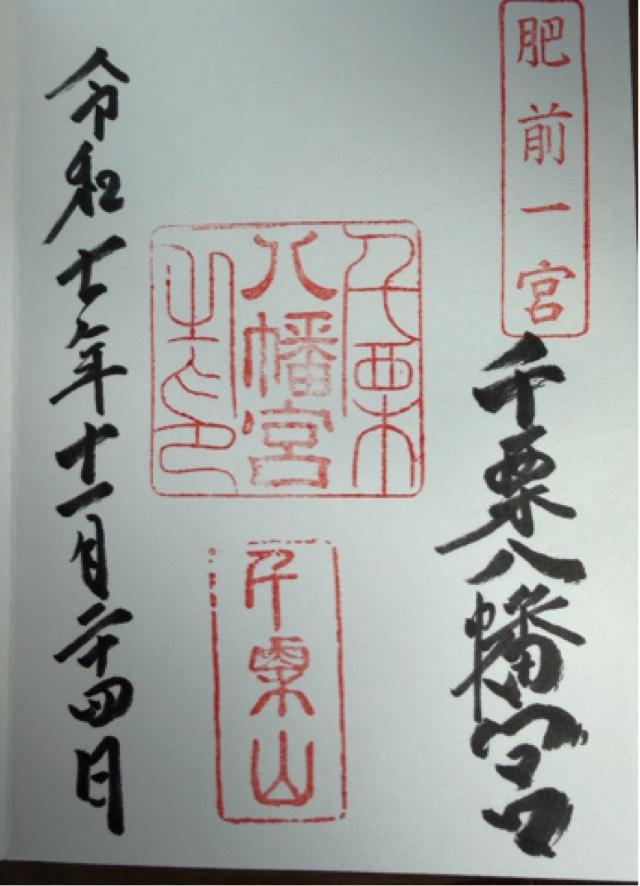 肥前一宮
千栗八幡宮
千栗
八幡宮
之印
千栗山
令和七年十一月二十四日